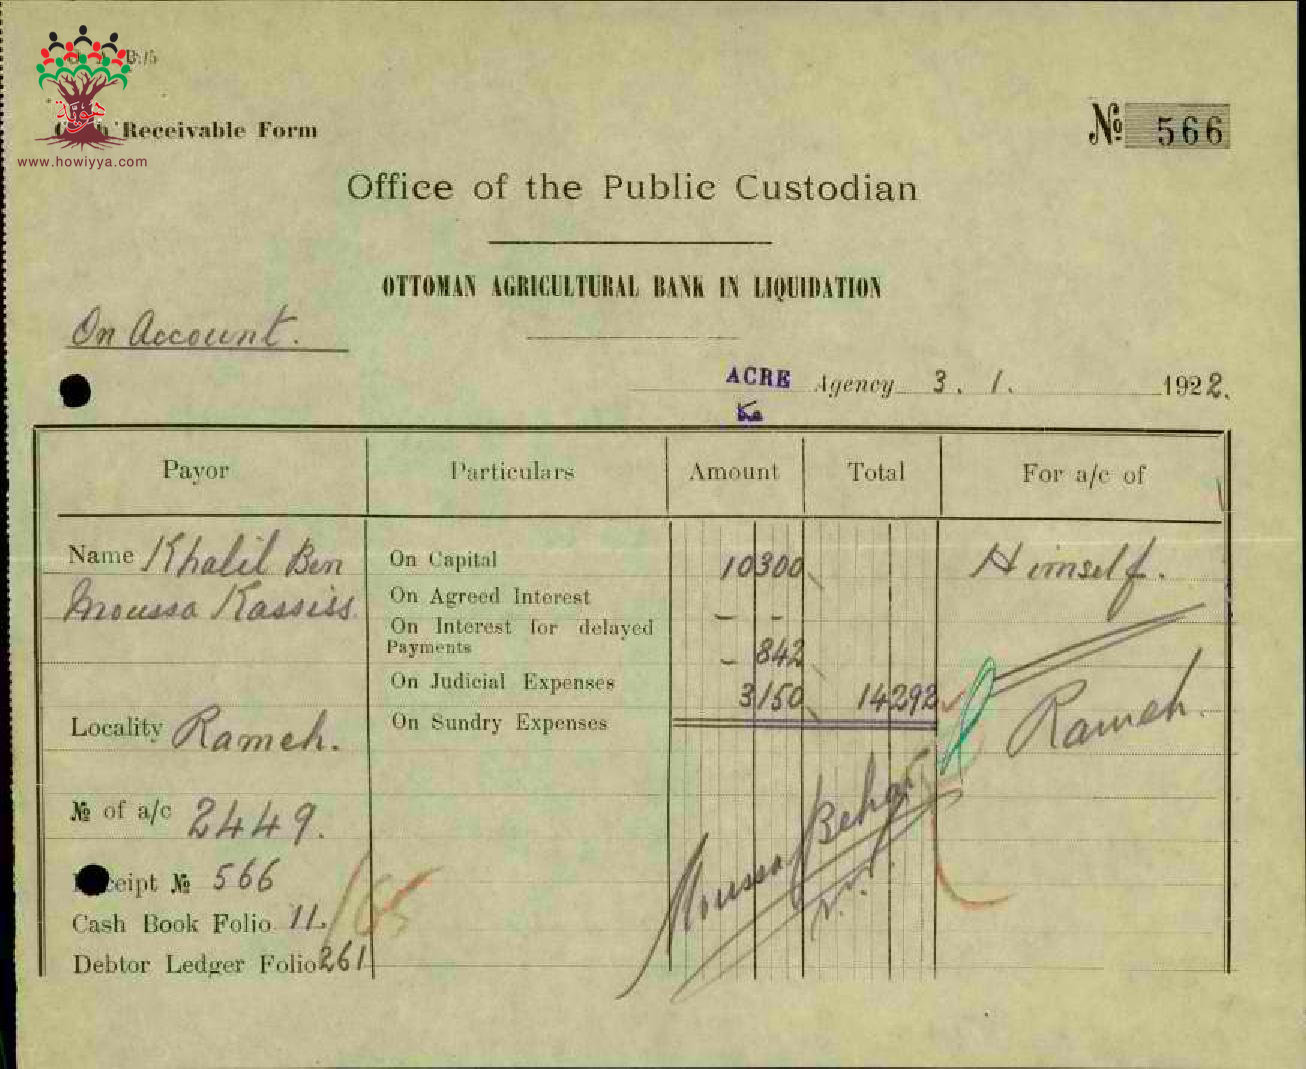 B/5
هوية
www.howiyya.com
Receivable Form
№ 566
Office of the Public Custodian
OTTOMAN AGRICULTURAL BANK IN LIQUIDATION
On Account.
ACRE Agency 3. 1. 1922.
Payor Particulars Amount Total For a/c of
Name Khalil Ben
Moussa Kassiss.
On Capital 10300 Himself.
On Agreed Interest - -
On Interest for delayed
Payments - 842
On Judicial Expenses 3150 14292
On Sundry Expenses
Locality Rameh. Rameh.
№ of a/c 2449.
Receipt № 566
Cash Book Folio 11.
Debtor Ledger Folio 261
Moussa